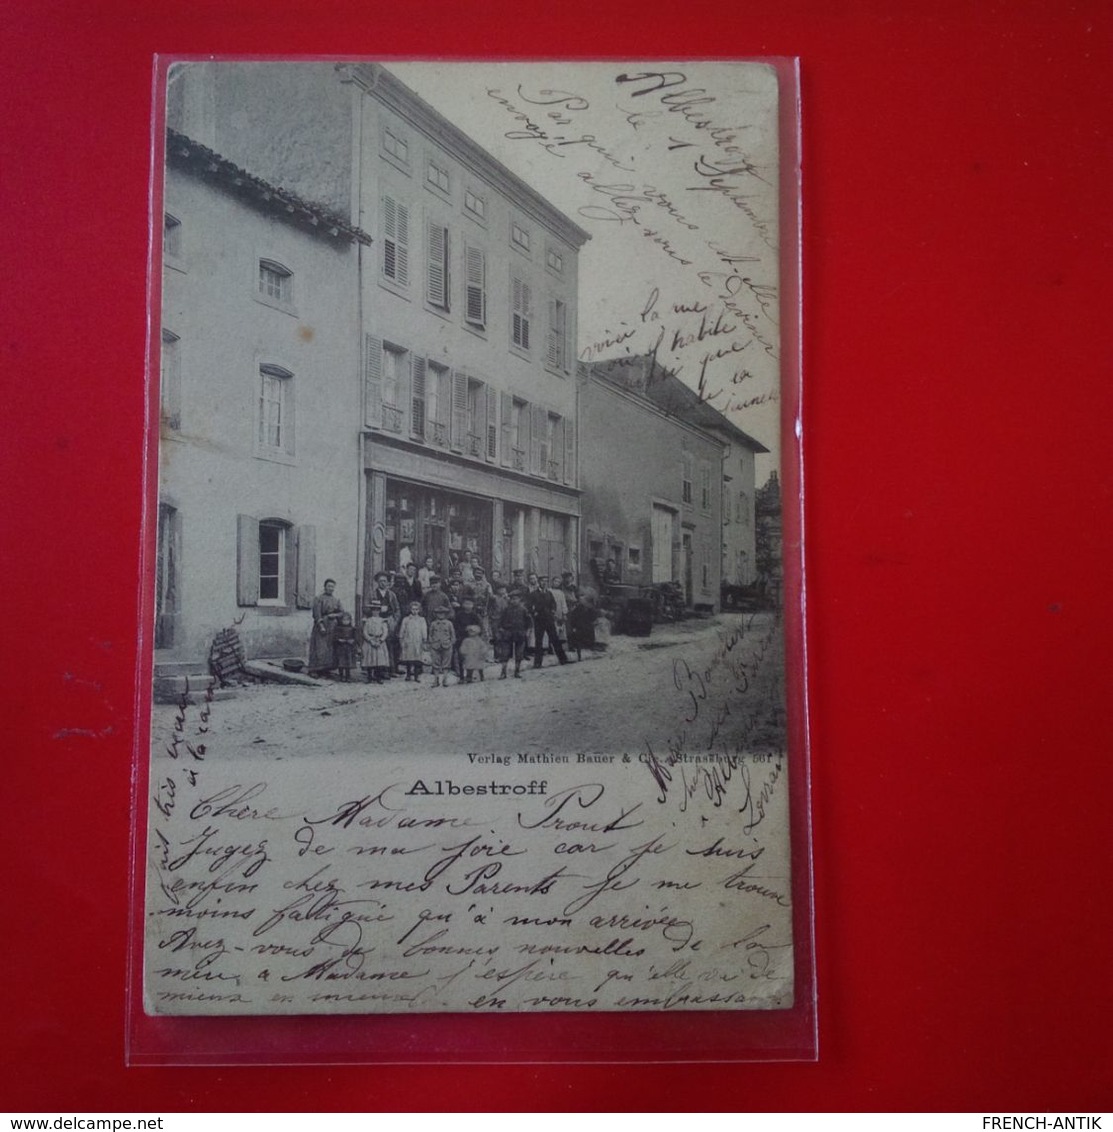 Albestroff
le 1 Septembre
Par qui vous est-elle
envoyée allez vous le deviner
voici la rue
où j'habite
que
Verlag Mathieu Bauer & Cie., Strassburg 561
Albestroff
fait très beau
à la
chez ses
Lorraine
Chère Madame Prout
Jugez de ma joie car je suis
enfin chez mes Parents je me trouve
moins fatigué qu'à mon arrivée
Avez-vous de bonnes nouvelles de la
à Madame j'espère qu'elle va de
mieux en mieux en vous embrassant
delcampe.net
FRENCH-ANTIK